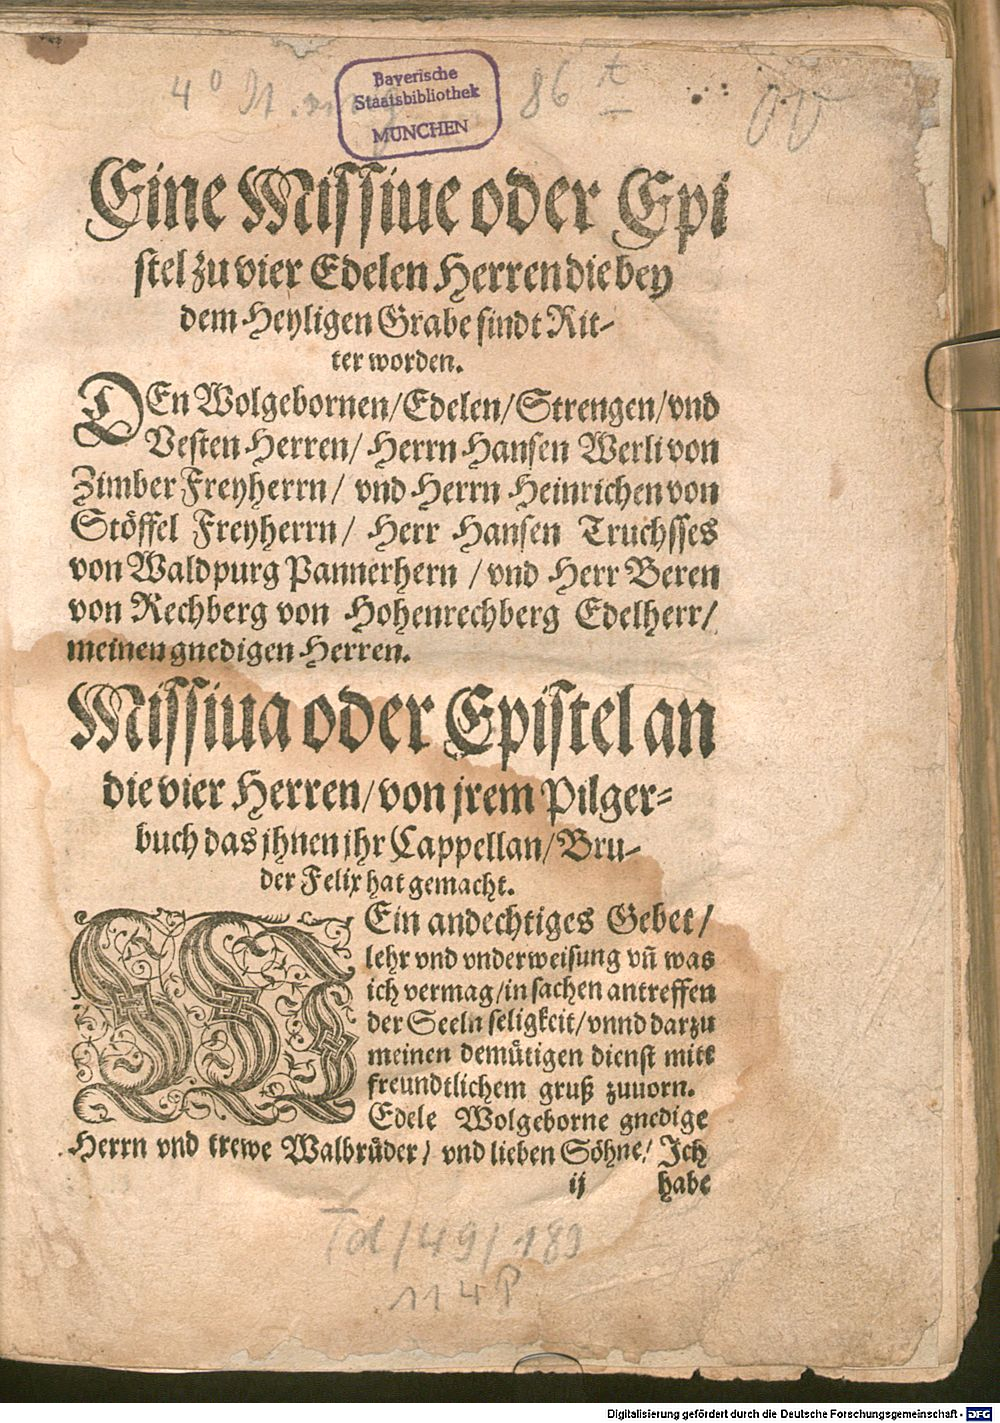 Bayerische
Staatsbibliothek
MÜNCHEN
4°
86
Eine Missiue oder Epi
stel zu vier Edelen Herren die bey
dem Heyligen Grabe sindt Rit-
ter worden.
DEn Wolgebornen/Edelen/Strengen/vnd
Vesten Herren/ Herrn Hansen Werli von
Zimber Freyherrn/ vnd Herrn Heinrichen von
Stöffel Freyherrn/ Herr Hansen Truchsses
von Waldpurg Pannerhern /vnd Herr Beren
von Rechberg von Hohenrechberg Edelherr/
meinen gnedigen Herren.
Missiua oder Epistel an
die vier Herren/von jrem Pilger-
buch das jhnen jhr Cappellan/Bru-
der Felix hat gemacht.
MEin andechtiges Gebet/
lehr vnd vnderweisung vñ was
ich vermag/in sachen antreffen
der Seeln seligkeit/vnnd darzu
meinen demütigen dienst mitt
freundtlichem gruß zuuorn.
Edele Wolgeborne gnedige
Herrn vnd trewe Walbrüder/ vnd lieben Söhne/ Ich
ij habe
/49/189
114
Digitalisierung gefördert durch die Deutsche Forschungsgemeinschaft - DFG